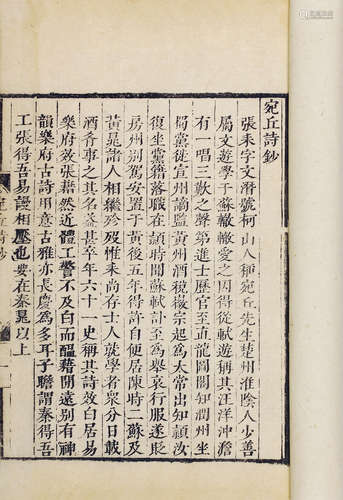 宛丘詩鈔
張耒字文潛號柯山人稱宛丘先生楚州淮陰人少善
屬文遊學于蘇轍轍愛之因得從軾遊稱其汪洋沖澹
有一唱三歎之聲第進士歷官至直龍圖閣知潤州坐
黨籍徙宣州謫監黃州酒稅徽宗起為太常出知潁汝
復坐黨籍落職在潁時聞蘇軾訃為舉哀行服遂貶
房州別駕安置于黃後五年得許自便居陳時二蘇及
黃晁諸人相繼殁惟耒尚存士人就學者眾分日載
酒肴事之其名益甚卒年六十一史稱其詩效白居易
樂府效張籍然近體工警不及白而醞藉閒遠別有神
韻樂府古詩用意古雅亦長慶為多耳子瞻謂秦得吾
工張得吾易謾相壓也要在秦晁以上
宛丘詩鈔
一